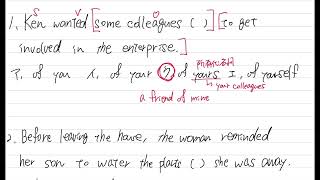 S V O
1. Ken wanted [some colleagues ( )] [to get
involved in the enterprise.]
ア. of you イ. of your ウ. of yours エ. of yourself
your colleagues
a friend of mine
2. Before leaving the house, the woman reminded
her son to water the plants ( ) she was away.